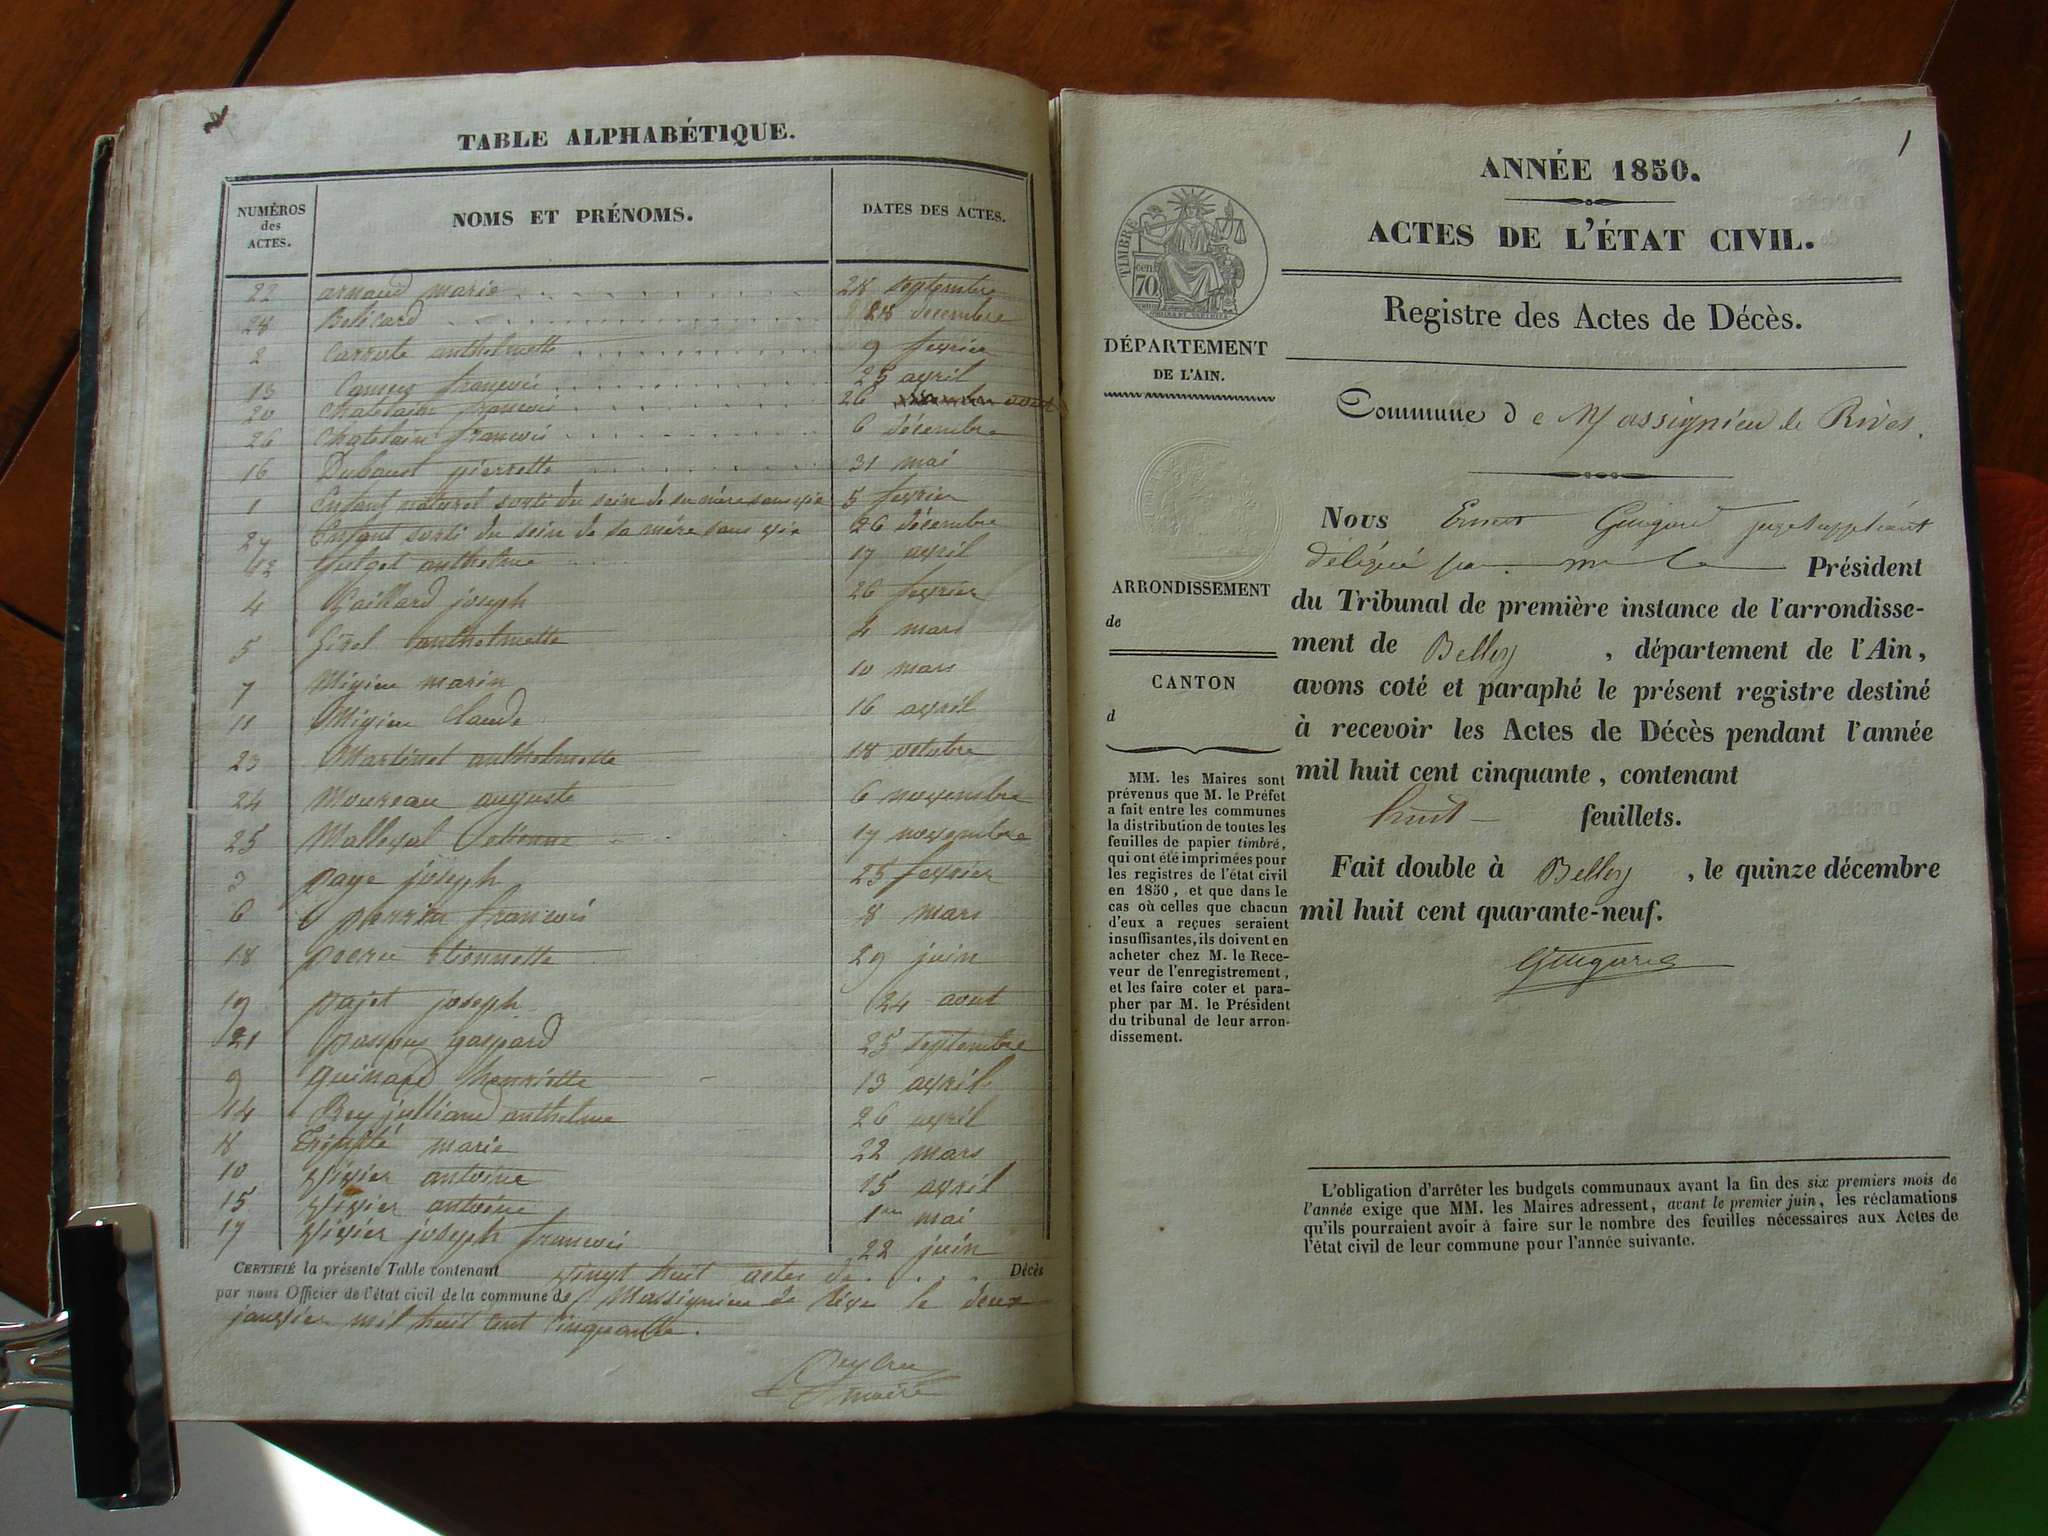 TABLE ALPHABÉTIQUE.
NUMÉROS
des
ACTES.
NOMS ET PRÉNOMS.
DATES DES ACTES.
22 arnaud marie 28 septembre
28 28 decembre
2 anthelmette 9 fevrier
13 françois 25 avril
20 chatelain françois 26 aout
26 chatelain françois 6 décembre
16 pierrette 31 mai
1 Enfant naturel sorti du sein de sa mère sans vie 5 fevrier
27 Enfant sorti du sein de sa mère sans vie 26 décembre
12 anthelme 17 avril
4 Gaillard joseph 26 fevrier
5 Girel anthelmette 4 mars
7 Migieu marin 10 mars
11 Migieu Claude 16 avril
23 Martinet anthelmette 18 octobre
24 Moureau auguste 6 novembre
25 Malleval Etienne 17 novembre
3 paye joseph 25 fevrier
6 perrin francois 8 mars
18 étiennette 29 juin
19 pajet joseph 24 aout
21 gaspard 25 septembre
9 quinard henriette 13 avril
14 Rey julliand anthelme 26 avril
8 marie 22 mars
10 vivier antoine 15 avril
15 vivier antoine 1er mai
17 vivier joseph francois 22 juin
CERTIFIÉ la présente Table contenant vingt huit actes de Décès
par nous Officier de l'état civil de la commune de Massignieu de Rives le deux
janvier mil huit cent cinquante.
maire
1
ANNÉE 1850.
ACTES DE L'ÉTAT CIVIL.
TIMBRE
cen.
70
Registre des Actes de Décès.
DÉPARTEMENT
DE L'AIN.
Commune de Massignieu de Rives.
Nous Ernest Guigard juge suppléant
délégué par m le Président
du Tribunal de première instance de l'arrondisse-
ment de Belley, département de l'Ain,
avons coté et paraphé le présent registre destiné
à recevoir les Actes de Décès pendant l'année
mil huit cent cinquante, contenant
huit feuillets.
Fait double à Belley, le quinze décembre
mil huit cent quarante-neuf.
Guigard
ARRONDISSEMENT
de
CANTON
d
MM. les Maires sont
prévenus que M. le Préfet
a fait entre les communes
la distribution de toutes les
feuilles de papier timbré,
qui ont été imprimées pour
les registres de l'état civil
en 1850, et que dans le
cas où celles que chacun
d'eux a reçues seraient
insuffisantes, ils doivent en
acheter chez M. le Rece-
veur de l'enregistrement,
et les faire coter et para-
pher par M. le Président
du tribunal de leur arron-
dissement.
L'obligation d'arrêter les budgets communaux avant la fin des six premiers mois de
l'année exige que MM. les Maires adressent, avant le premier juin, les réclamations
qu'ils pourraient avoir à faire sur le nombre des feuilles nécessaires aux Actes de
l'état civil de leur commune pour l'année suivante.